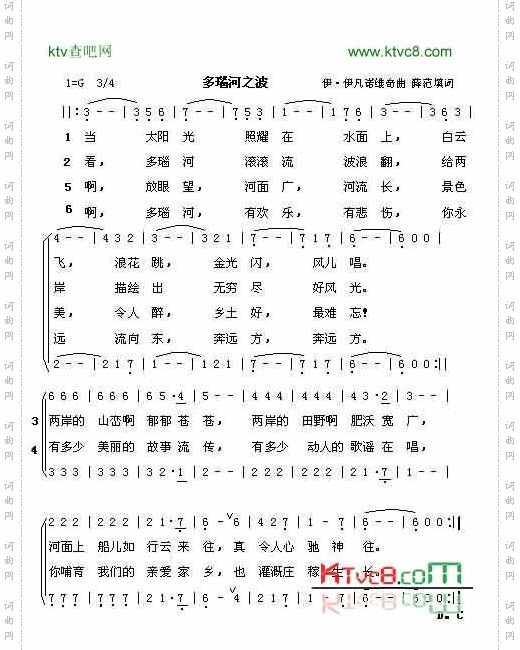 ktv查吧网 www.ktvc8.com
1=G 3/4 多瑙河之波 伊·伊凡诺维奇曲 薛范填词
||: 3 - - | 3 5 6 | 7 - - | 7 5 3 | 7 - - | 7 6 7 | 3 - - | 3 6 3 |
1 当 太阳 光 照耀 在 水面 上, 白云
2 看, 多瑙 河 滚滚 流 波浪 翻, 给两
5 啊, 放眼 望, 河面 广, 河流 长, 景色
6 啊, 多瑙 河, 有欢 乐, 有悲 伤, 你永
4 - - | 4 3 2 | 3 - - | 3 2 1 | 7 - - | 7 1 7 | 6 - - | 6 0 0 |
飞, 浪花 跳, 金光 闪, 风儿 唱。
岸 描绘 出 无穷 尽 好风 光。
美, 令人 醉, 乡土 好, 最难 忘!
远 流向 东, 奔远 方, 奔远 方。
2 - - | 2 1 7 | 1 - - | 3 2 1 | 7 - - | 7 1 7 | 6 - - | 6 0 0 :||
6 6 6 | 6 6 6 | 6 5·4 | 5 - - | 4 4 4 | 4 4 4 | 4 3·2 | 3 - - |
3 两岸的 山峦啊 郁郁 苍 苍, 两岸的 田野啊 肥沃 宽 广,
4 有多少 美丽的 故事 流 传, 有多少 动人的 歌谣 在 唱,
3 3 3 | 3 3 3 | 3 2·1 | 3 - - | 2 2 2 | 2 2 2 | 2 1·7 | 1 - - |
2 2 2 | 2 2 2 | 2 1·7 | 6 - ∨6 | 4 2 7 | 1 - 7 | 6 - - | 6 0 0 :||
河面上 船儿如 行云 来 往, 真 令人心 驰 神 往。
你哺育 我们的 亲爱 家 乡, 也 灌溉庄 稼 生 长。
2 2 2 | 2 2 2 | 2 1·7 | 6 - ∨4 | 2 1 7
KTvc8.com
D. C
词曲网
词曲网
词曲网
词曲网
词曲网
词曲网
词曲网
词曲网